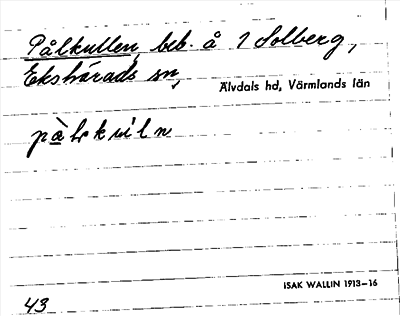 Pålkullen, beb. å 1 Solberg,
Ekshärads sn,
Älvdals hd, Värmlands län
ISAK WALLIN 1913–16
43